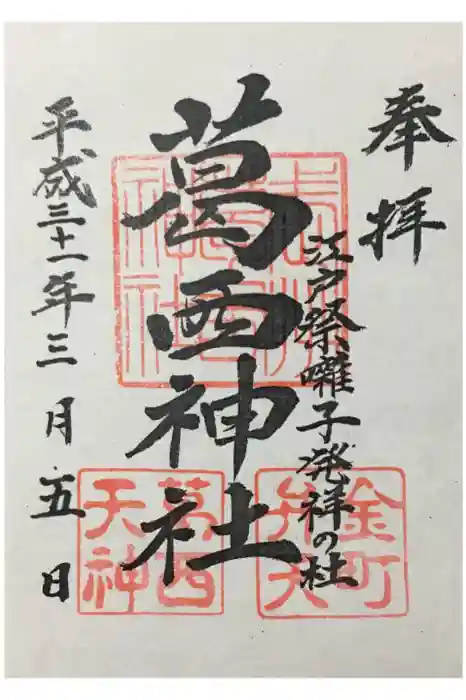 奉拝
江戸祭囃子発祥の社
葛西神社
平成三十一年三月五日
葛西天神
金町弁天